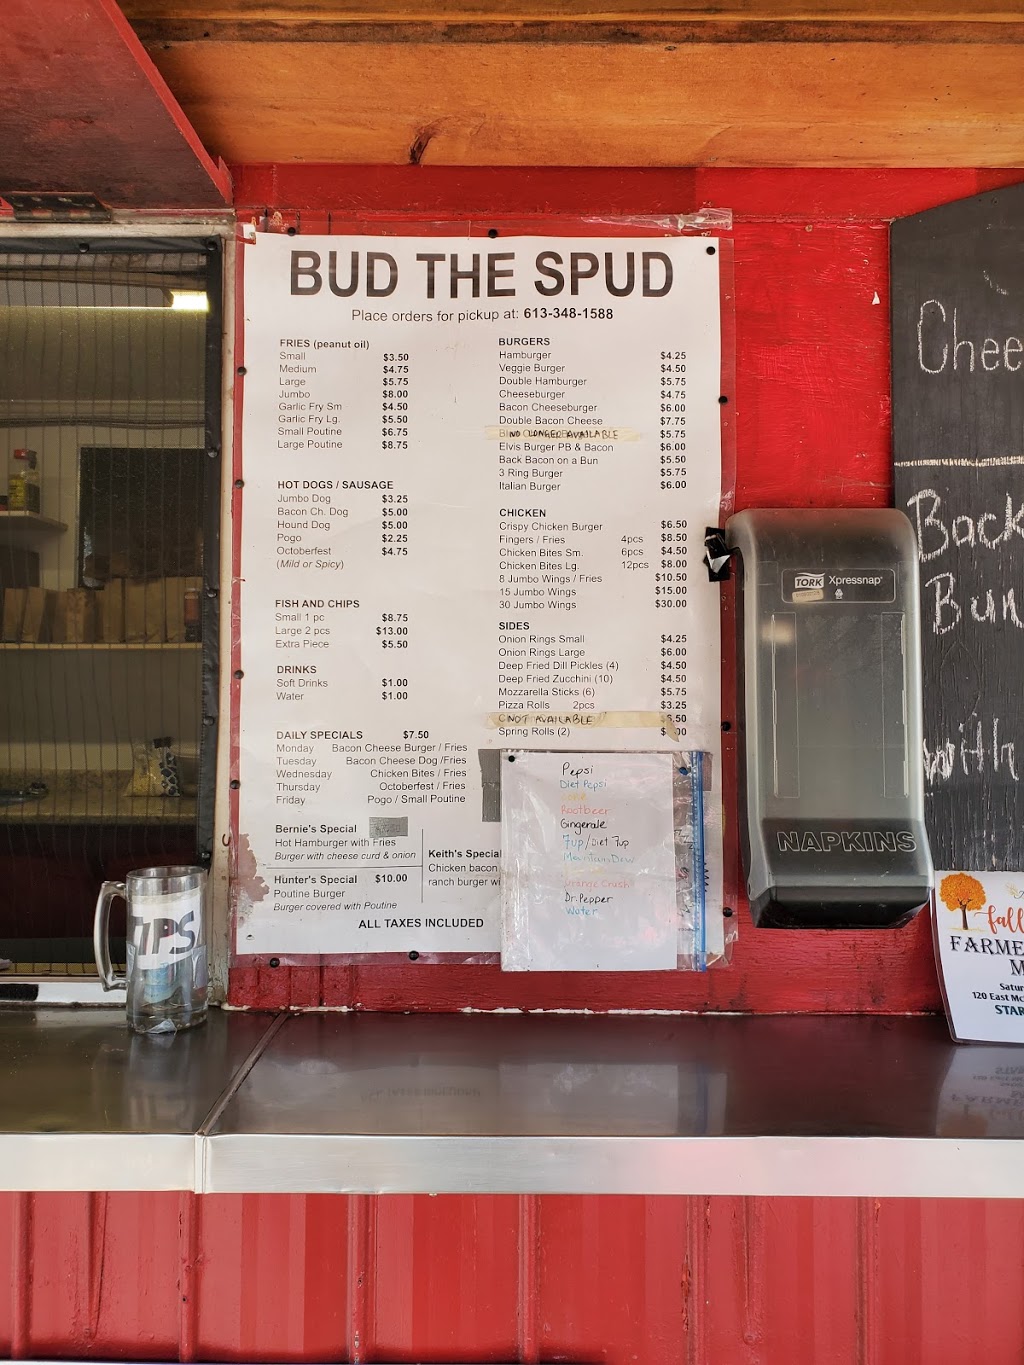 BUD THE SPUD
Place orders for pickup at: 613-348-1588
FRIES (peanut oil)
Small $3.50
Medium $4.75
Large $5.75
Jumbo $8.00
Garlic Fry Sm $4.50
Garlic Fry Lg. $5.50
Small Poutine $6.75
Large Poutine $8.75
HOT DOGS / SAUSAGE
Jumbo Dog $3.25
Bacon Ch. Dog $5.00
Hound Dog $5.00
Pogo $2.25
Octoberfest $4.75
(Mild or Spicy)
FISH AND CHIPS
Small 1 pc $8.75
Large 2 pcs $13.00
Extra Piece $5.50
DRINKS
Soft Drinks $1.00
Water $1.00
DAILY SPECIALS $7.50
Monday Bacon Cheese Burger / Fries
Tuesday Bacon Cheese Dog /Fries
Wednesday Chicken Bites / Fries
Thursday Octoberfest / Fries
Friday Pogo / Small Poutine
Bernie's Special
Hot Hamburger with Fries
Burger with cheese curd & onion
Hunter's Special $10.00
Poutine Burger
Burger covered with Poutine
Keith's Special
Chicken bacon
ranch burger
ALL TAXES INCLUDED
BURGERS
Hamburger $4.25
Veggie Burger $4.50
Double Hamburger $5.75
Cheeseburger $4.75
Bacon Cheeseburger $6.00
Double Bacon Cheese $7.75
NO LONGER AVAILABLE $5.75
Elvis Burger PB & Bacon $6.00
Back Bacon on a Bun $5.50
3 Ring Burger $5.75
Italian Burger $6.00
CHICKEN
Crispy Chicken Burger $6.50
Fingers / Fries 4pcs $8.50
Chicken Bites Sm. 6pcs $4.50
Chicken Bites Lg. 12pcs $8.00
8 Jumbo Wings / Fries $10.50
15 Jumbo Wings $15.00
30 Jumbo Wings $30.00
SIDES
Onion Rings Small $4.25
Onion Rings Large $6.00
Deep Fried Dill Pickles (4) $4.50
Deep Fried Zucchini (10) $4.50
Mozzarella Sticks (6) $5.75
Pizza Rolls 2pcs $3.25
NOT AVAILABLE
Spring Rolls (2)
Pepsi
Diet Pepsi
Rootbeer
Gingerale
7up/Diet 7up
Mountain Dew
Orange Crush
Dr. Pepper
Water
TORK Xpressnap
NAPKINS
Chee
Back
Bun
with
fall
FARME
M
Satur
120 East Mc
STAR